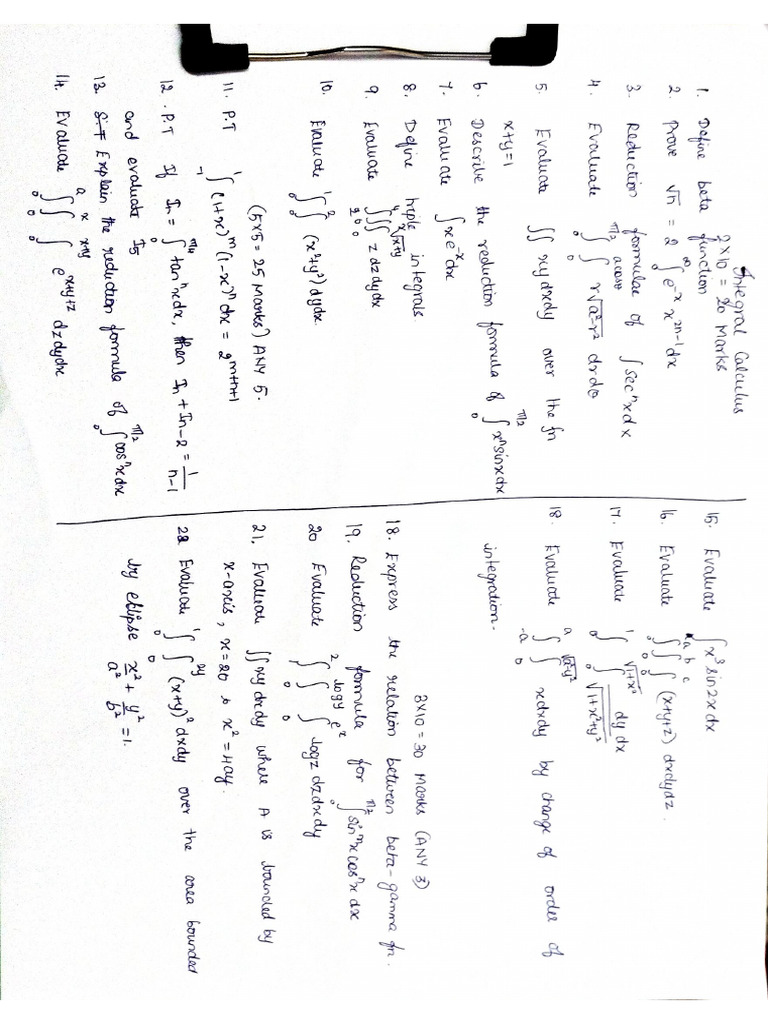 Integral Calculus
2×10 = 20 Marks
1. Define beta function
2. Prove √n = 2 ∫₀^∞ e^-x x^2n-1 dx
3. Reduction formulae of ∫ secⁿx dx
4. Evaluate ∫₀^π/2 ∫₀^a cosθ r√a²-r² dr dθ
5. Evaluate ∫∫ xy dxdy over the fn
x+y=1
6. Describe the reduction formula of ∫₀^π/2 xⁿ sinx dx
7. Evaluate ∫ x e^-x dx
8. Define triple integrals
9. Evaluate ∫∫∫ z dz dy dx
10. Evaluate ∫₀^1 ∫₀^2 (x²+y²) dy dx
(5×5 = 25 Marks) ANY 5.
11. P.T ∫₋₁^1 (1+x)^m (1-x)^n dx = 2^m+n+1
12. P.T If In = ∫₀^π/4 tanⁿx dx, then In + In-2 = 1/n-1
and evaluate I5
13. S.T Explain the reduction formula of ∫₀^π/2 cosⁿx dx
14. Evaluate ∫₀^a ∫₀^x ∫₀^x+y e^x+y+z dz dy dx
15. Evaluate ∫ x³ sin 2x dx
16. Evaluate ∫₀^a ∫₀^b ∫₀^c (x+y+z) dx dy dz.
17. Evaluate ∫₀^1 ∫₀^√1+x² dy dx / √1+x²+y²
18. Evaluate ∫₋ₐ^a ∫₀^√a²-y² x dx dy by change of order of
integration.
3×10 = 30 Marks (ANY 3)
18. Express the relation between beta-gamma fn.
19. Reduction formula for ∫₀^π/2 sin^m x cosⁿ x dx
20 Evaluate ∫₁^2 ∫₀^logy ∫₀^e^x log z dz dx dy
21. Evaluate ∫∫ xy dx dy where A is bounded by
x-axis, x = 20 & x² = 4ay.
22 Evaluate ∫₀^1 ∫₀^2y (x+y)² dx dy over the area bounded
by ellipse x²/a² + y²/b² = 1.